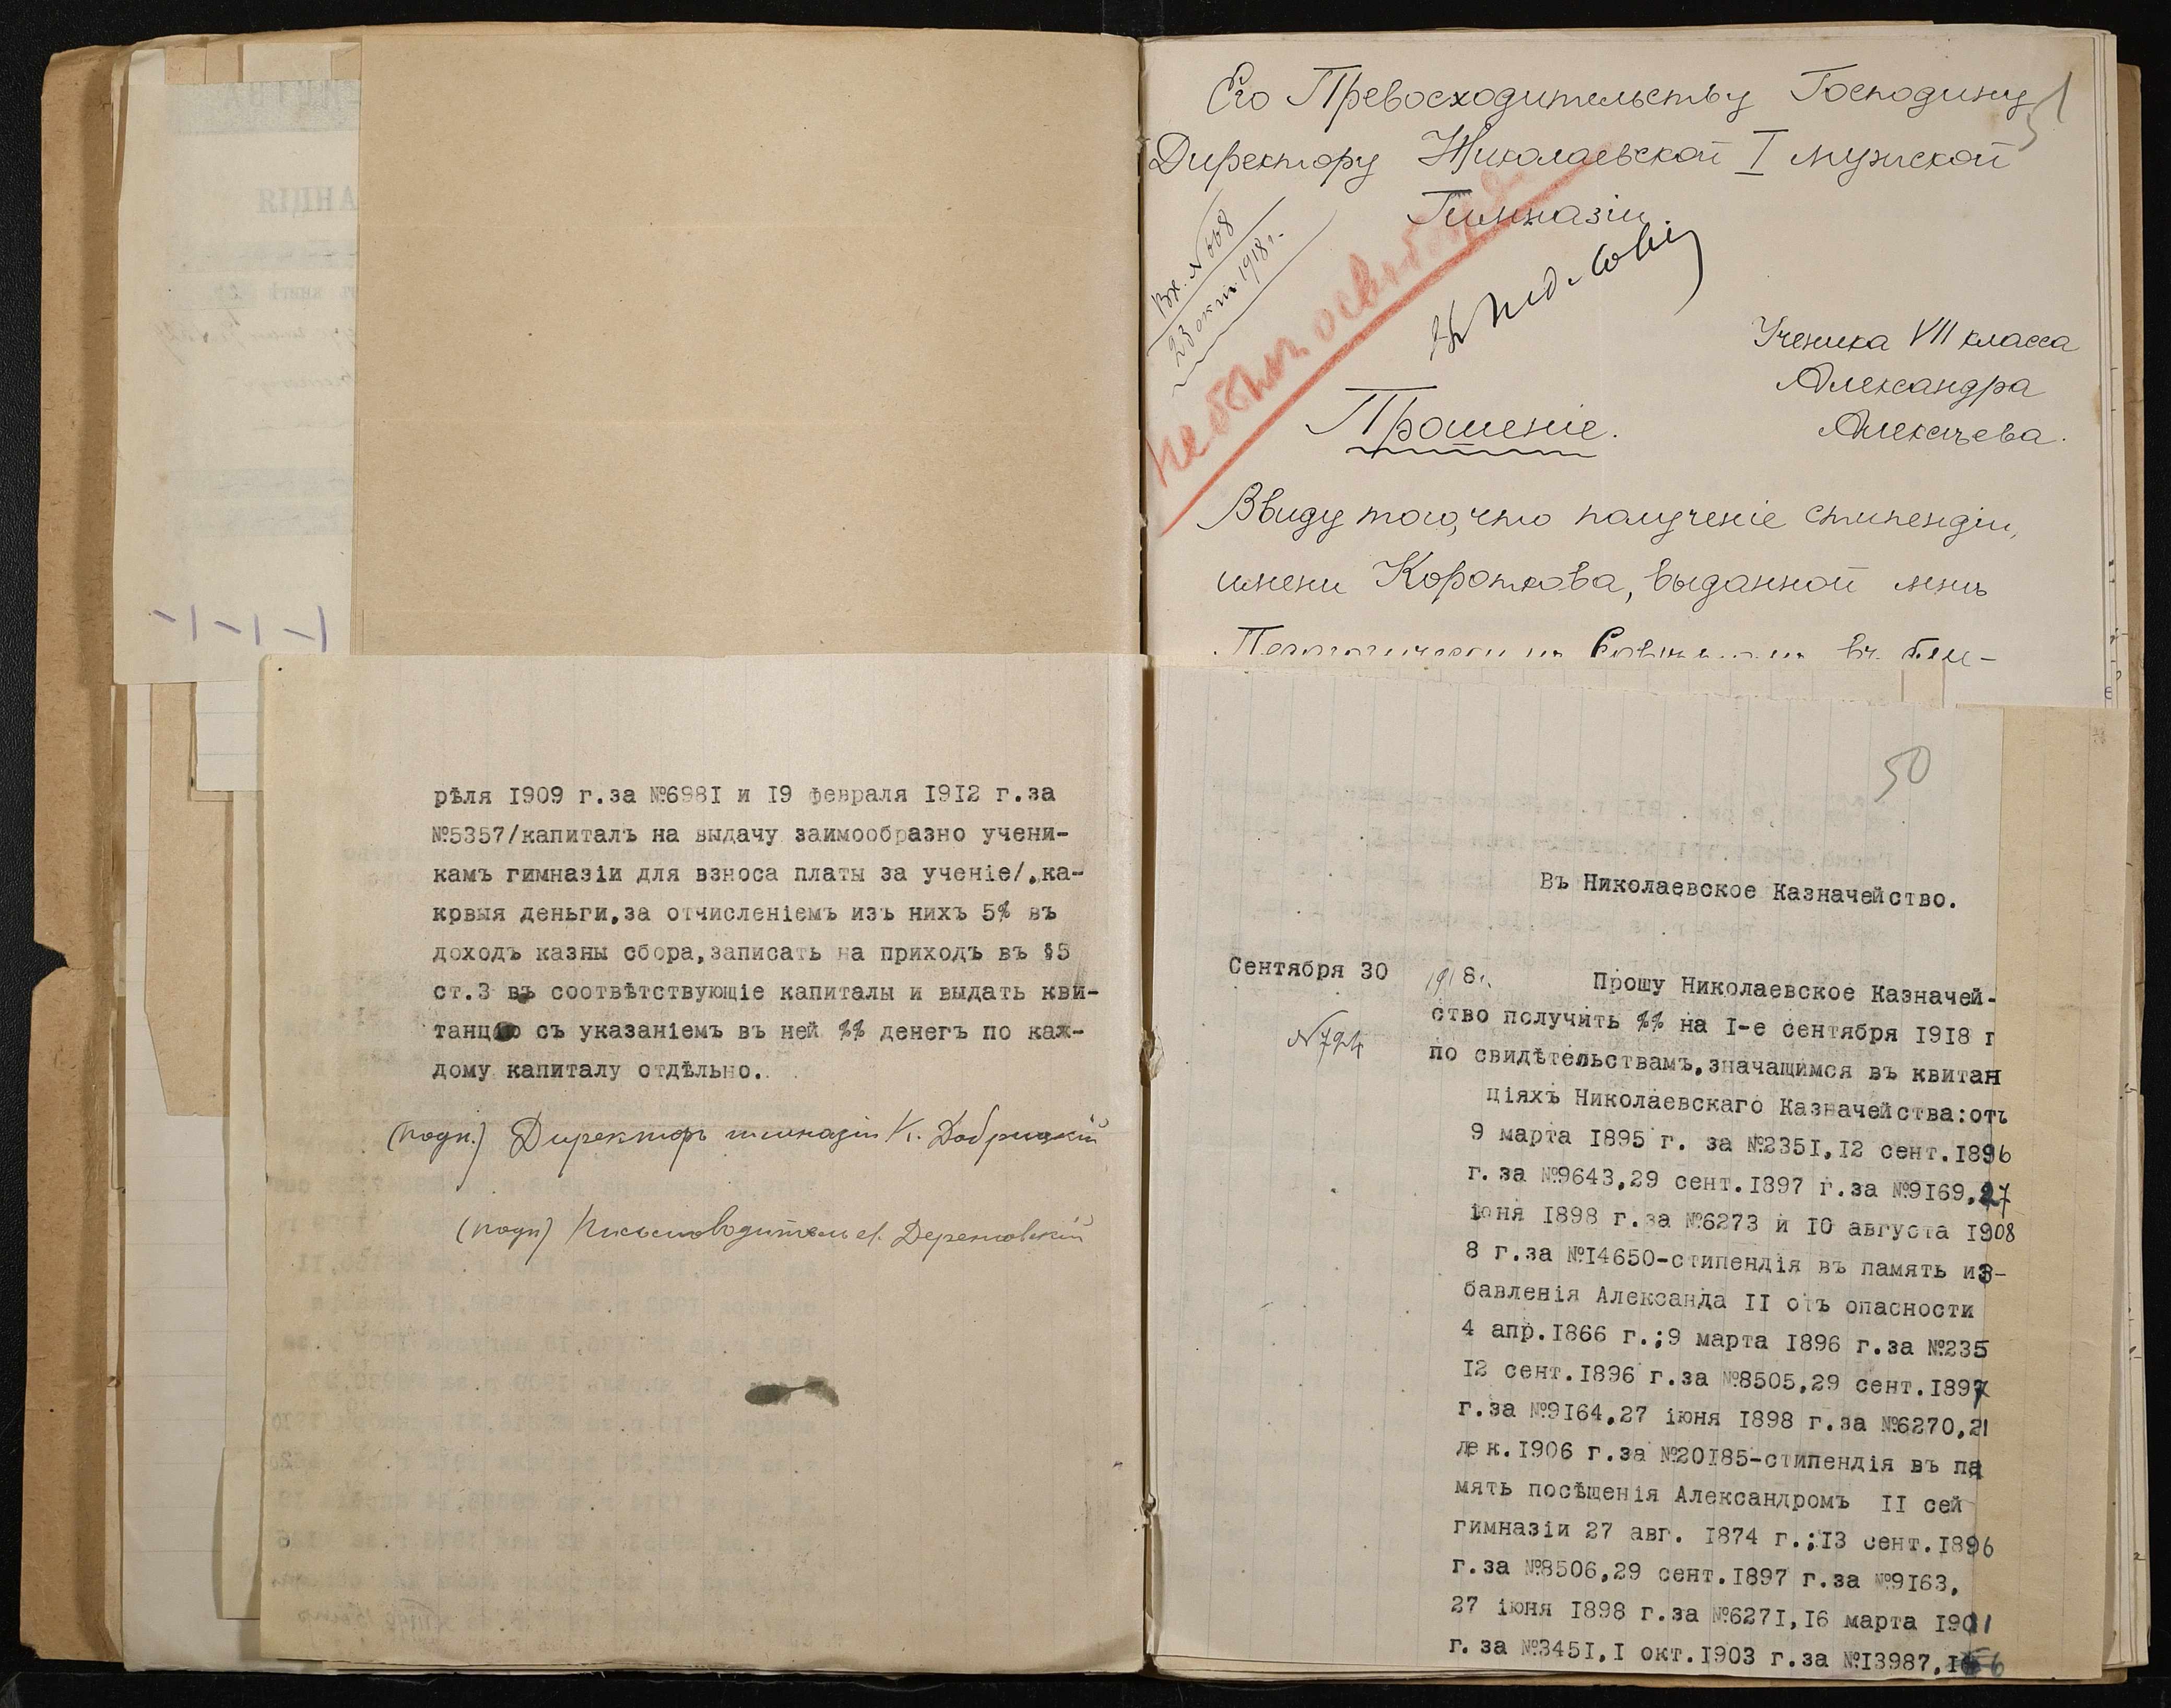 рѣля 1909 г.за №6981 и 19 февраля 1912 г.за
№5357/капиталъ на выдачу заимообразно учени-
камъ гимназіи для взноса платы за ученіе/.ка-
крвыя деньги,за отчисленіемъ изъ нихъ 5% въ
доходъ казны сбора,записать на приходъ въ §5
ст.3 въ соотвѣтствующіе капиталы и выдать кви-
танцію съ указаніемъ въ ней %% денегъ по каж-
дому капиталу отдѣльно.
(подп.) Директоръ гимназіи К. Добрицкій
(подп) Письмоводитель
Его Превосходительству Господину
51
Директору Николаевской I мужской
Гимназіи.
Вх. № 668
23 окт. 1918 г.
Ученика VII класса
Александра
Алексѣева.
Прошеніе.
Ввиду того, что полученіе стипендіи,
имени Короткова, выданной мнѣ
Педагогическимъ Совѣтомъ въ
50
Въ Николаевское Казначейство.
Сентября 30 1918г.
№724
Прошу Николаевское Казначей-
ство получить %% на 1-е сентября 1918 г
по свидѣтельствамъ,значащимся въ квитан
ціяхъ Николаевскаго Казначейства:отъ
9 марта 1895 г. за №2351,12 сент.1896
г.за №9643,29 сент.1897 г.за №9169,27
іюня 1898 г.за №6273 и 10 августа 1908
8 г.за №14650-стипендія въ память из-
бавленія Александа II отъ опасности
4 апр.1866 г.;9 марта 1896 г.за №235
12 сент.1896 г.за №8505,29 сент.1897
г.за №9164,27 іюня 1898 г.за №6270,21
дек.1906 г.за №20185-стипендія въ па
мять посѣщенія Александромъ II сей
гимназіи 27 авг. 1874 г.;13 сент.1896
г.за №8506,29 сент.1897 г.за №9163,
27 іюня 1898 г.за №6271,16 марта 1901
г.за №3451,1 окт.1903 г.за №13987,